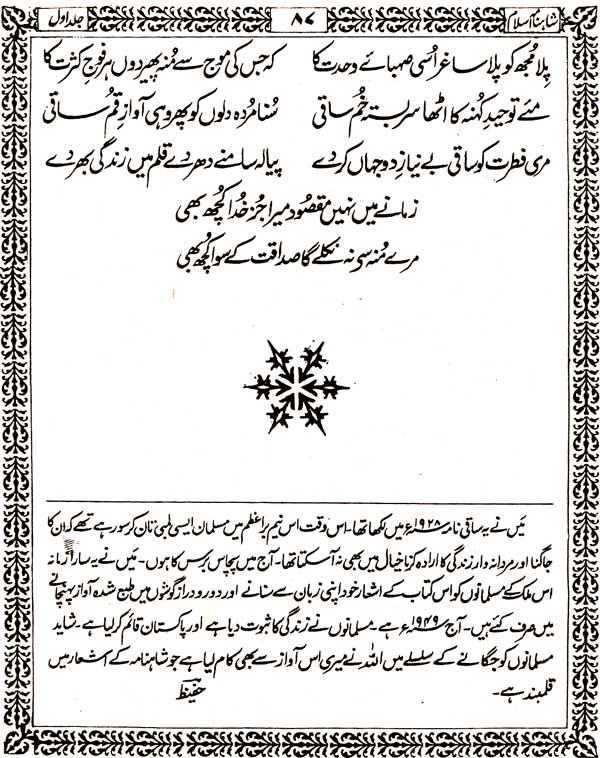 شاہنامۂ اسلام
۸۷
جلد اول
پلا مجھ کو پلا ساغر اُسی صہبائے وحدت کا
کہ جس کی موج سے مُنہ پھیر دوں ہر فوجِ کثرت کا
مئے توحیدِ کُہنہ کا اٹھا سربستہ خُم ساقی
سُنا مردہ دلوں کو پھر وہی آوازِ قُم ساقی
مری فطرت کو ساقی بے نیازِ دو جہاں کر دے
پیالہ سامنے دھر دے قلم میں زندگی بھر دے
زمانے میں نہیں مقصُود میرا جُز خُدا کچُھ بھی
مرے مُنہ سی نہ نکلے گا صداقت کے سوا کچُھ بھی
مَیں نے یہ ساقی نامہ ۱۹۲۸ء میں لکھا تھا۔ اس وقت اس نیم براعظم میں مسلمان ایسی لمبی تان کر سو رہے تھے کہ ان کا
جاگنا اور مردانہ وار زندگی کا ارادہ کرنا خیال میں بھی نہ آسکتا تھا۔ آج میں پچاس برس کا ہوں۔ مَیں نے یہ سارا زمانہ
اس ملک کے مسلمانوں کو اس کتاب کے اشعار خود اپنی زبان سے سنانے اور دور و دراز گوشوں میں طبع شدہ آواز پہنچانے
میں صرف کئے ہیں۔ آج ۱۹۴۹ء ہے۔ مسلمانوں نے زندگی کا ثبوت دیا ہے اور پاکستان قائم کر لیا ہے۔ شاید
مسلمانوں کو جگانے کے سلسلے میں اللہ نے میری اس آواز سے بھی کام لیا ہے جو شاہنامہ کے اشعار میں
قلمبند ہے۔
حفیظ